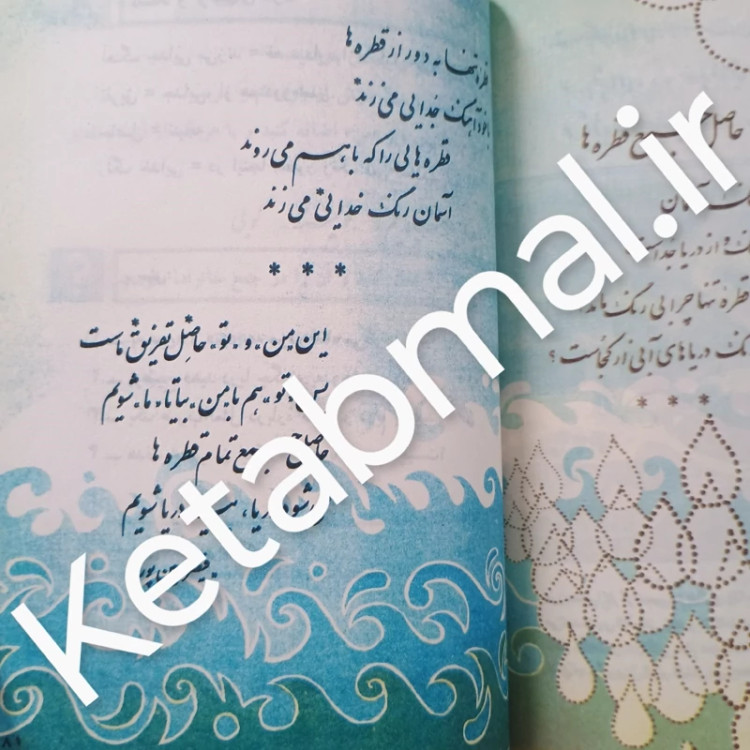 حاصل جمع قطره ها
آسمان
و از دریا جداست
قطره تنها چرا بی رنگ ماند
رنگ دریاهای آبی از کجاست؟
* * *
قطره تنها به دور از قطره ها
با خود آهنگ جدایی می زند*
قطره هایی را که با هم می روند
آسمان رنگ خدایی* می زند
* * *
این «من» و «تو» حاصل تفریق* ماست
پس تو هم با من بیا تا «ما» شویم
حاصل جمع تمام قطره ها
شود دریا، دریا شویم
قیصر امین پور
۸۱
Ketabmal.ir